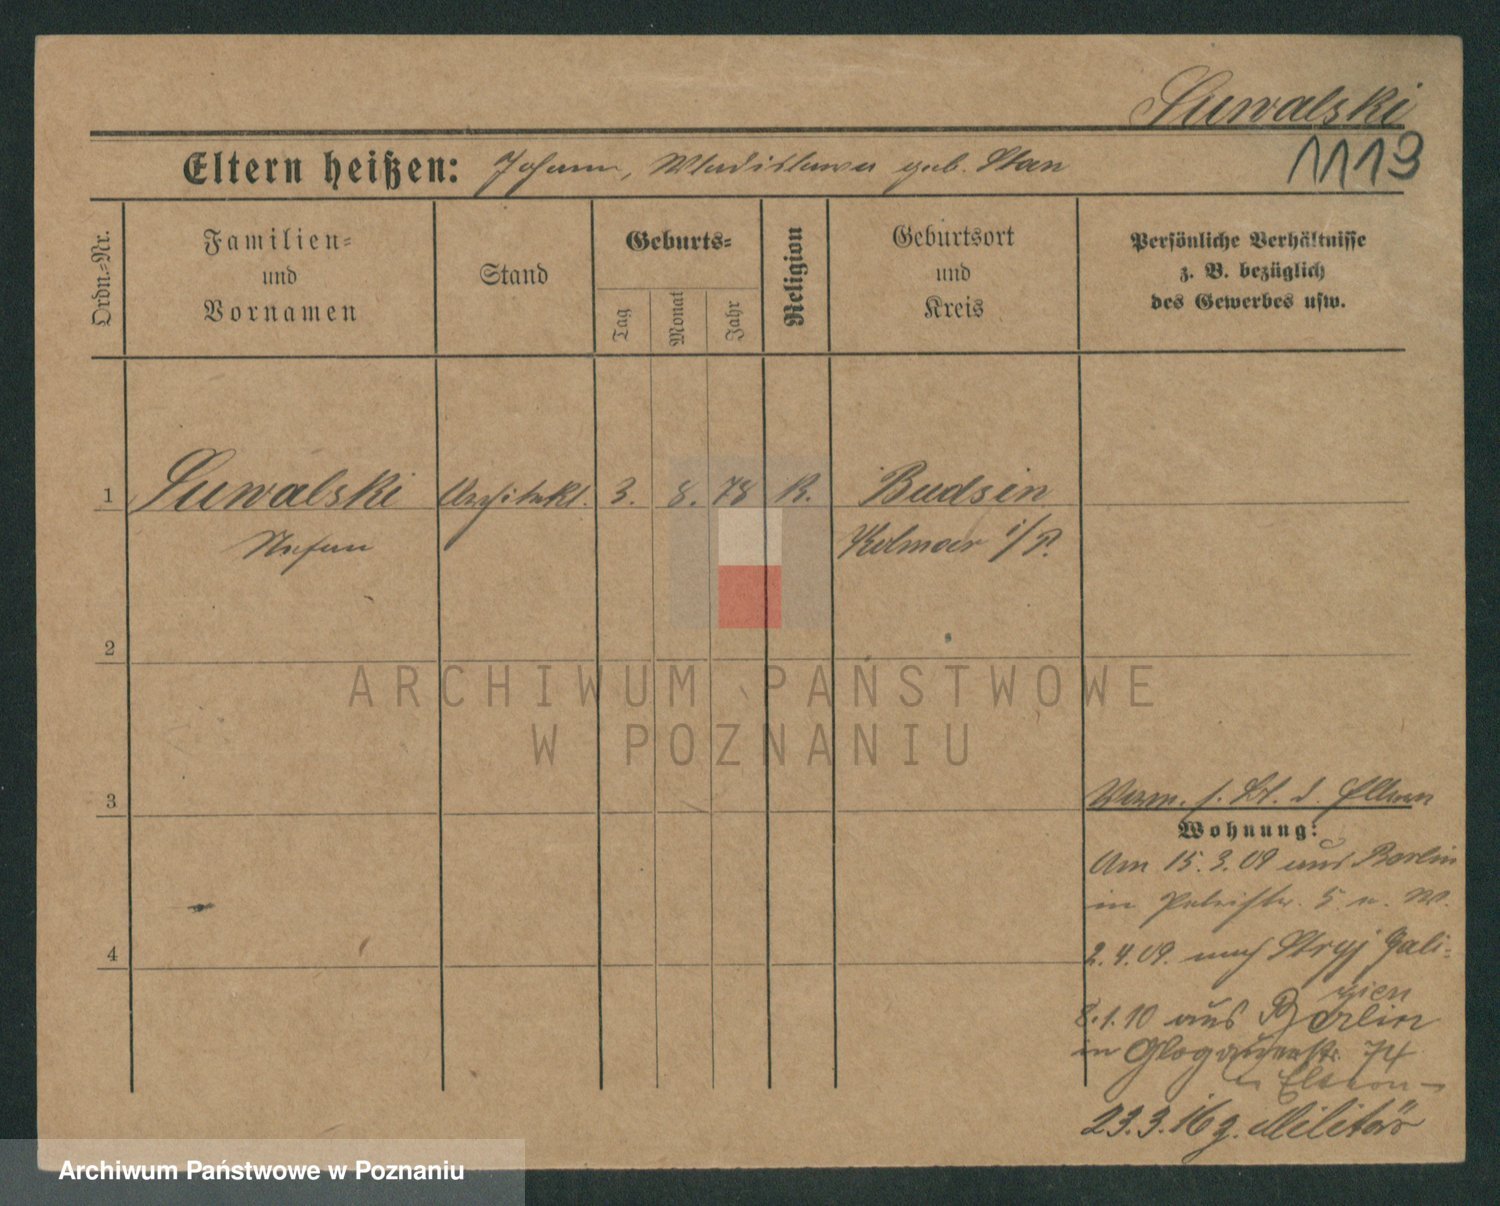 Suwalski
1119
Eltern heißen: Johann, Wladislawa geb. Stan
Ordn.=Nr.
Familien=
und
Vornamen
Stand
Geburts=
Tag
Monat
Jahr
Religion
Geburtsort
und
Kreis
Persönliche Verhältnisse
z. B. bezüglich
des Gewerbes usw.
1 Suwalski Architekt. 3. 8. 78 K. Budsin
Stefan Kolmar i/P.
2
ARCHIWUM PAŃSTWOWE
W POZNANIU
3
Verm. s. Bl. d Eltern
Wohnung:
Am 15.3.09 aus Berlin
in Petristr. 5 n. W.
4
2.4.09. nach Stryj Gali=
zien
8.1.10 aus Berlin
in Glogauerstr. 74
Eltern
23.3.16 z. Militär
Archiwum Państwowe w Poznaniu